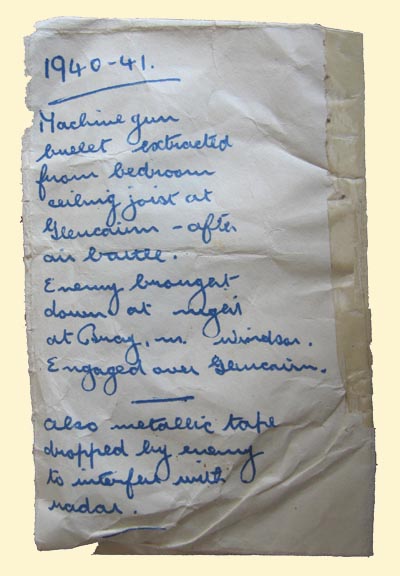 1940-41.
Machine gun
bullet extracted
from bedroom
ceiling joist at
Glencairn - after
air battle.
Enemy brought
down at night
at Bray, nr. Windsor.
Engaged over Glencairn.
Also metallic tape
dropped by enemy
to interfere with
radar.